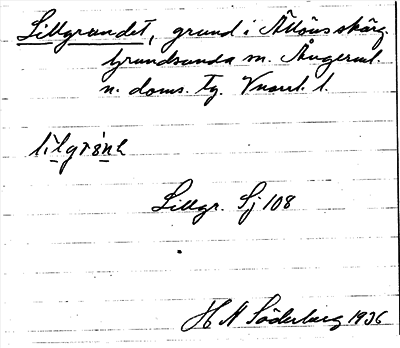 Lillgrundet, grund i Ällöns skärg.
Grundsunda sn. Ångerml.
n. doms. tg. Vnorrl. l.
Lillgr. Sj 108
H N Söderberg 1936